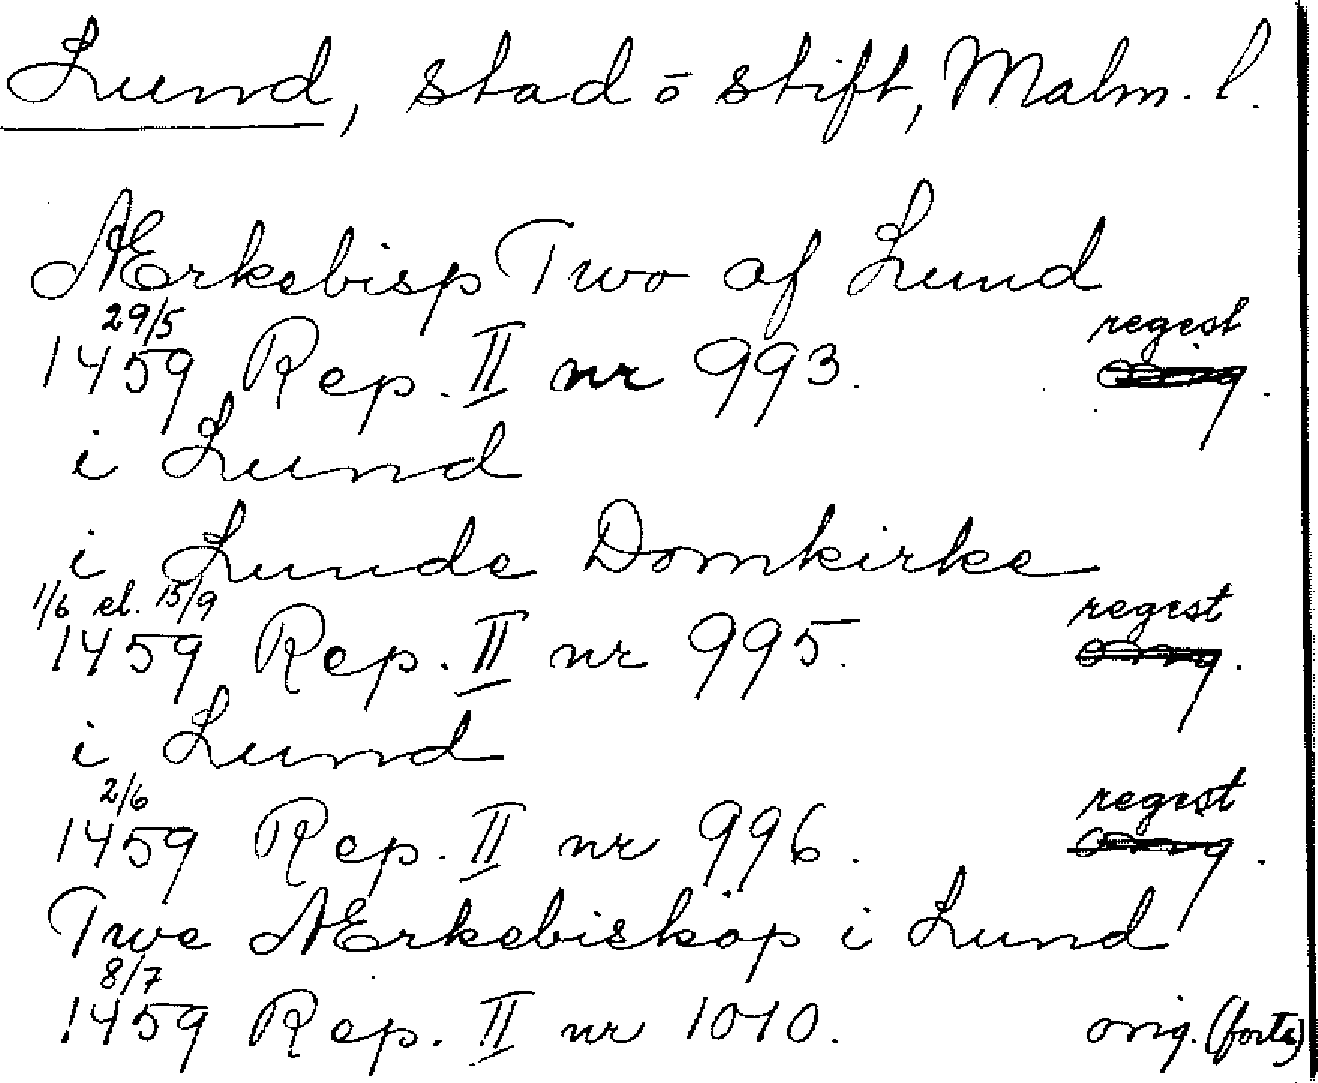 Lund, stad o stift, Malm. l.
Ærkebisp Two af Lund
29/5 regest
1459 Rep. II nr 993. orig.
i Lund
i Lunde Domkirke
1/6 el. 15/9 regest
1459 Rep. II nr 995. orig.
i Lund
2/6 regest
1459 Rep. II nr 996. orig.
Twe Ærkebiskop i Lund
8/7
1459 Rep. II nr 1010. orig. (forts)